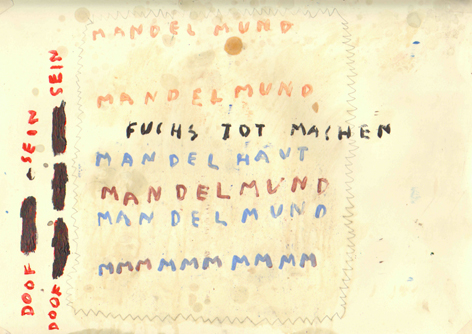 MANDELMUND
MANDELMUND
FUCHS TOT MACHEN
MANDELHAUT
MANDELMUND
MANDELMUND
MMMMMMMMMM
DOOF SEIN
DOOF SEIN